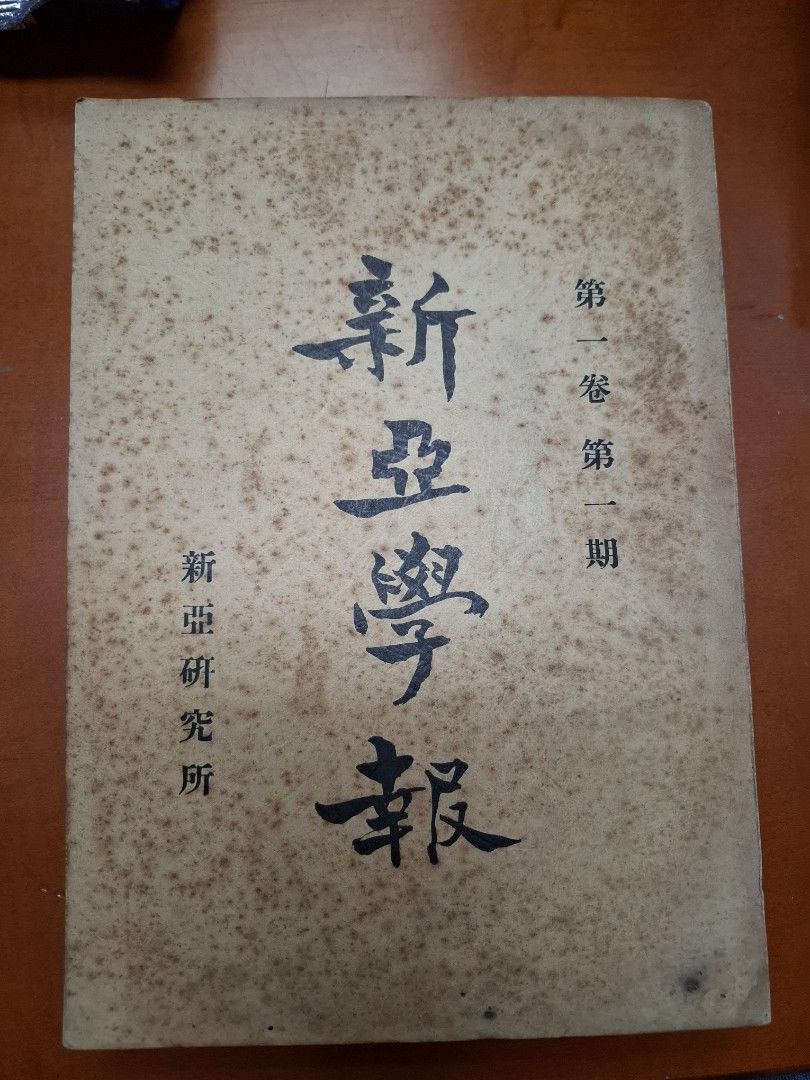 第一卷 第一期
新亞學報
新亞研究所